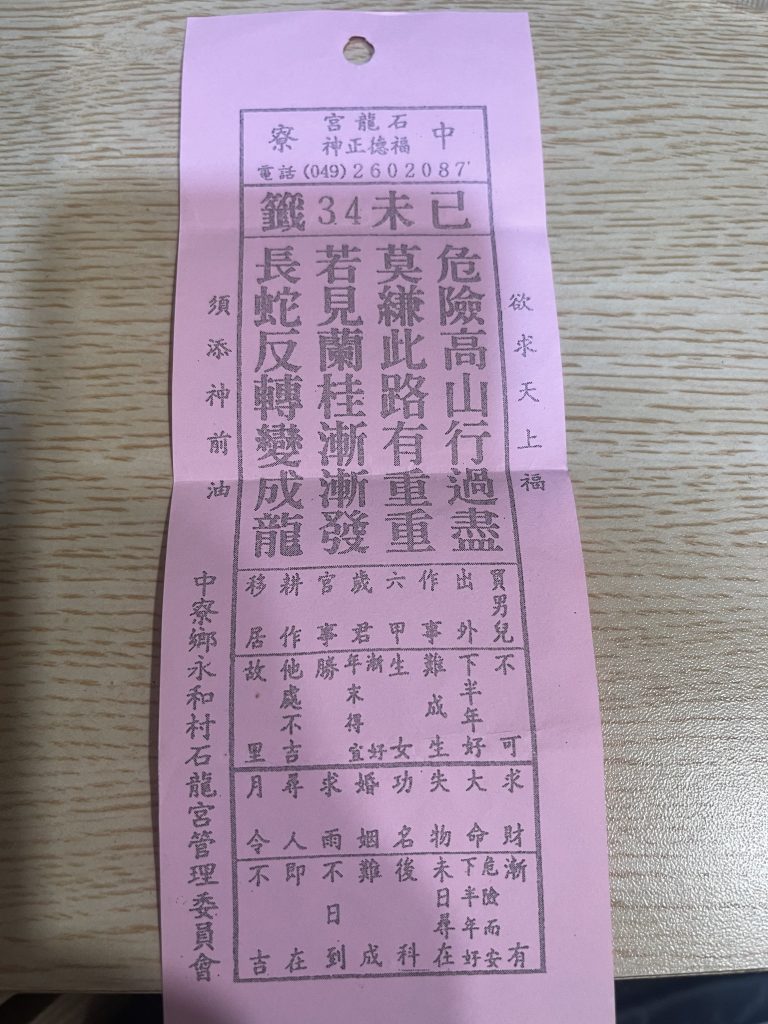 中寮
石龍宮
福德正神
電話(049)2602087
已未34籤
欲求天上福
危險高山行過盡
莫縑此路有重重
若見蘭桂漸漸發
長蛇反轉變成龍
須添神前油
買男兒 不可
出外 下半年好
作事 難成生
六甲 生女
歲君 漸好 年末得宜
官事 勝
耕作 他處不吉
移居 故里
求財 漸有
大命 危險而安 下半年好
失物 未日尋在
功名 後科
婚姻 難成
求雨 不日到
尋人 即在
月令 不吉
中寮鄉永和村石龍宮管理委員會